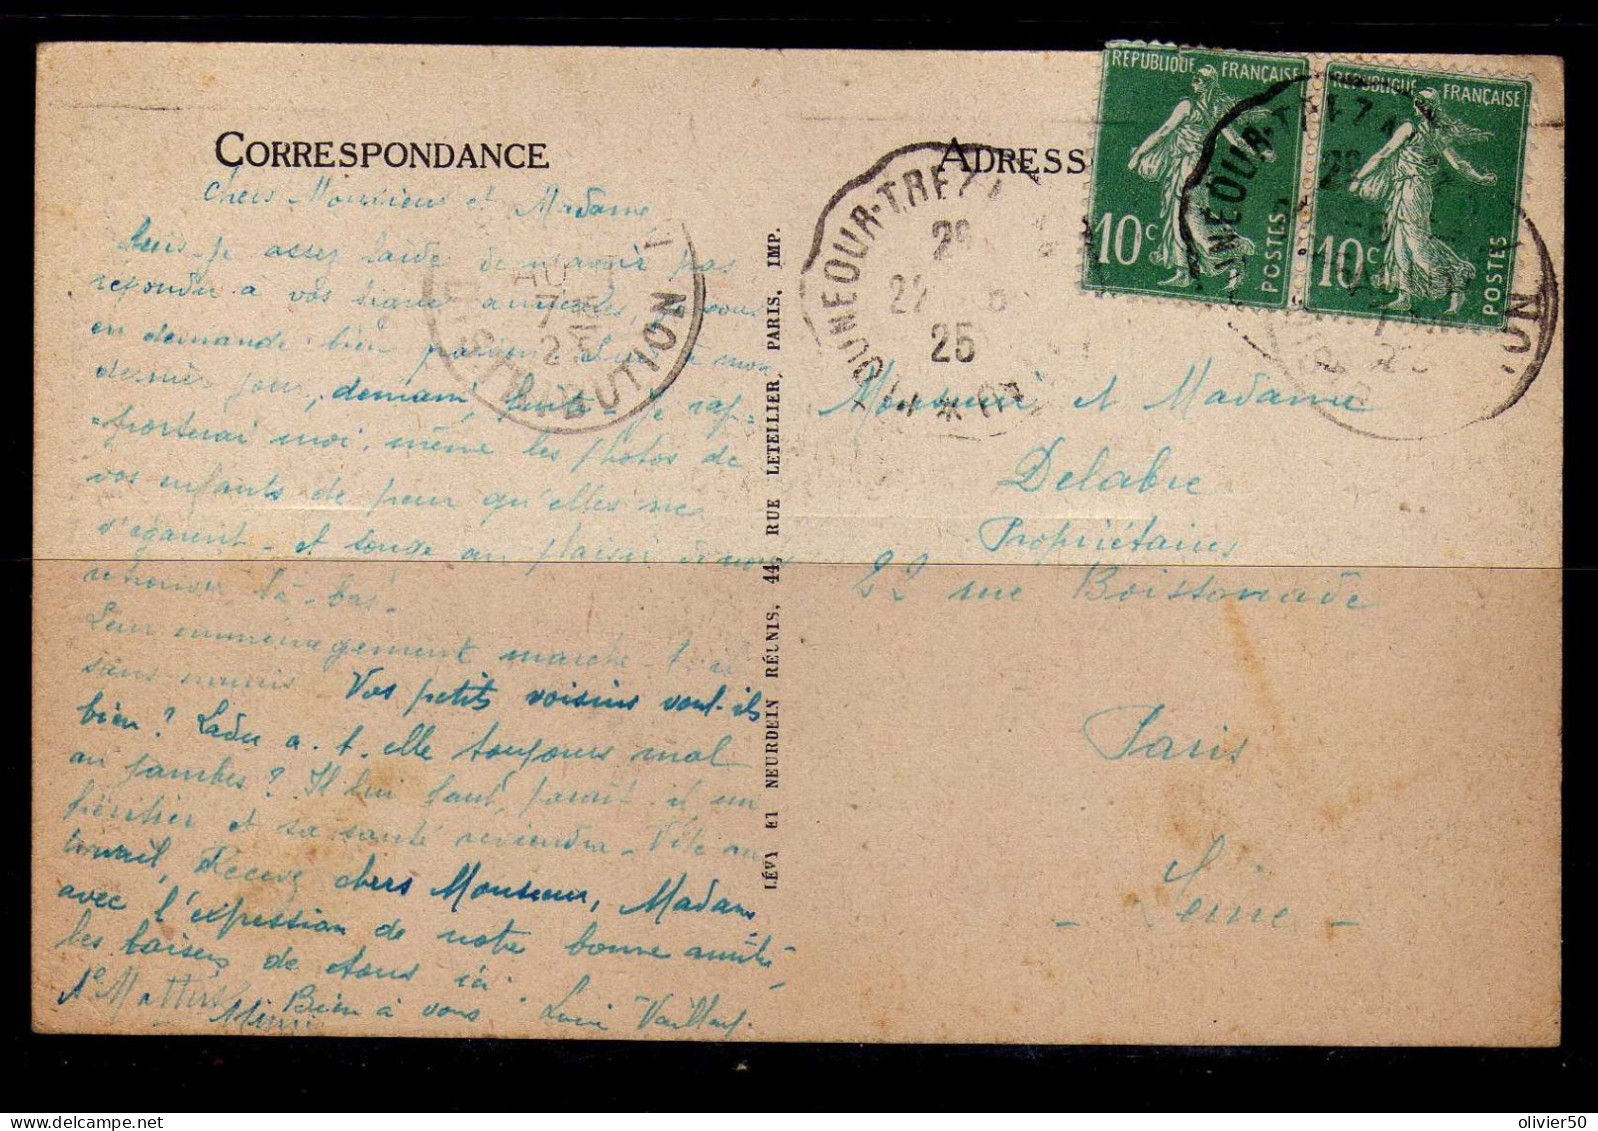 CORRESPONDANCE
Chers Monsieur et Madame
suis-je assez laide de n'avoir pas
répondu à vos amicales, je vous
en demande bien pardon à mon
dernier jour, demain, je rap-
-porterai moi-même les photos de
vos enfants de peur qu'elles ne
s'égarent - et songe au plaisir de vous
retrouver là-bas.
Leur emménagement marche-t-il
sans Vos petits voisins vont-ils
bien? a-t-elle toujours mal
au jambes? Il lui faut, paraît-il un
héritier et sa santé reviendra - Vite au
travail, Recevez chers Monsieur, Madame
avec l'expression de notre bonne amitié
les baisers de tous ici
Bien à vous
LÉVY ET NEURDEIN RÉUNIS, 44, RUE LETELLIER, PARIS, IMP.
AU
7
25
DISTRIBUTION
ADRESS
REPUBLIQUE FRANÇAISE
10c
POSTES
REPUBLIQUE FRANÇAISE
10c
POSTES
22
25
Monsieur et Madame
Delabre
Propriétaires
22 rue Boissonade
Paris
- Seine -
olivier50